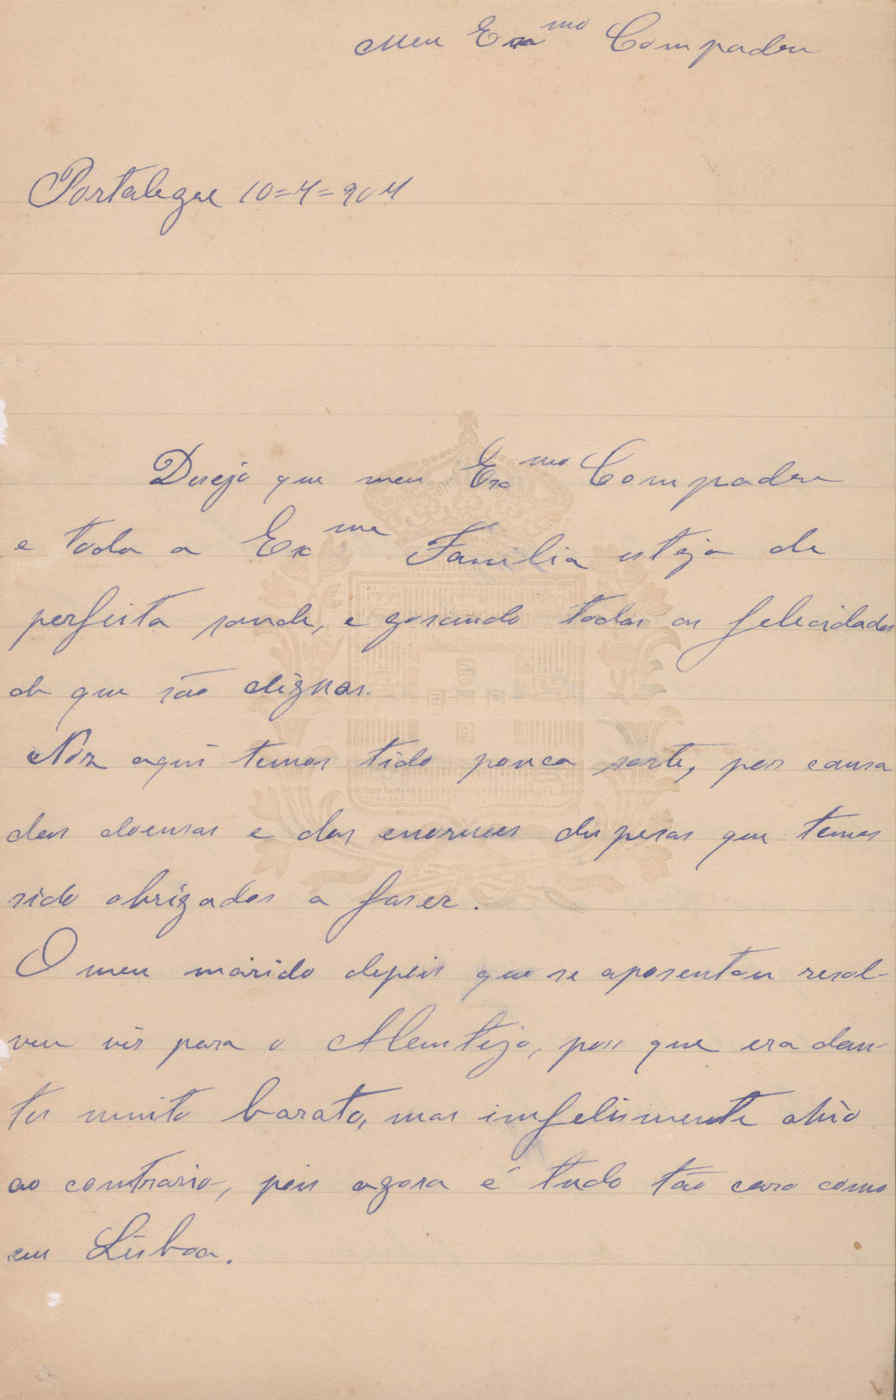 Meu Exmo Compadre
Portalegre 10=4=904
Desejo que meu Exmo Compadre
e toda a Exma Familia esteja de
perfeita saude, e gosando todas as felecidades
de que são dignas.
Nós aqui temos tido pouca sorte, por causa
das doensas e das enormes despesas que temos
sido obrigados a faser.
O meu marido depois que se aposentou resol-
veu vir para o Alemtejo, por que era dan-
tes muito barato, mas imfelismente
ao contrario, pois agora é tudo tão caro como
em Lisboa.